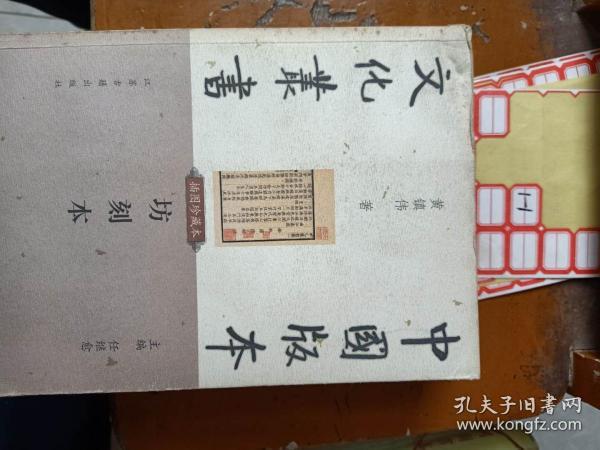 中國版本
文化叢書
黄镇伟 著
插图珍藏本
坊刻本
主编 任继愈
江苏古籍出版社
1-1
孔夫子旧书网
www.kongfz.com